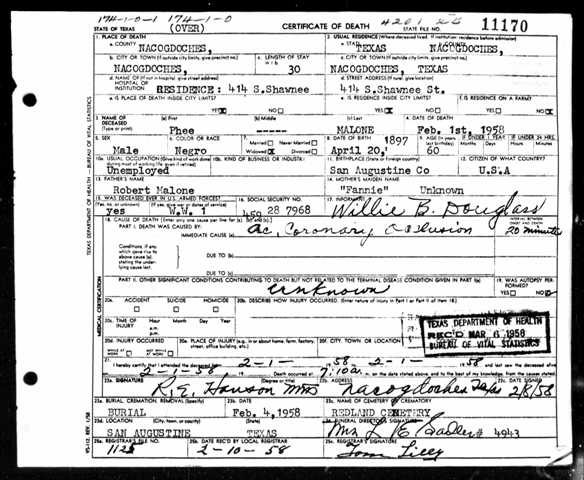 174-10-1 174-1-0 4201 25
STATE OF TEXAS (OVER) CERTIFICATE OF DEATH STATE FILE NO. 11170
1. PLACE OF DEATH 2. USUAL RESIDENCE (Where deceased lived. If institution: residence before admission)
a. COUNTY NACOGDOCHES, a. STATE TEXAS NACOGDOCHES,
b. CITY OR TOWN (If outside city limits, give precinct no.) c. LENGTH OF STAY in 1 b c. CITY OR TOWN (If outside city limits, give precinct no.)
NACOGDOCHES, 30 NACOGDOCHES, TEXAS
d. NAME OF (If not in hospital, give street address) HOSPITAL OR INSTITUTION d. STREET ADDRESS (If rural, give location)
RESIDENCE: 414 S.Shawnee 414 S.Shawnee St.
e. IS PLACE OF DEATH INSIDE CITY LIMITS? e. IS RESIDENCE INSIDE CITY LIMITS? f. IS RESIDENCE ON A FARM?
YES NO YES NO YES NO
3. NAME OF DECEASED (Type or print) (a) First (b) Middle (c) Last 4. DATE OF DEATH
Phee ------ MALONE Feb. 1st, 1958
5. SEX 6. COLOR OR RACE 7. Married Never Married 8. DATE OF BIRTH 1897 9. AGE (In years last birthday) IF UNDER 1 YEAR IF UNDER 24 HRS.
Male Negro Widowed Divorced April 20, 60 Months Days Hours Minutes
10a. USUAL OCCUPATION (Give kind of work done 10b. KIND OF BUSINESS OR INDUSTRY 11. BIRTHPLACE (State or foreign country) 12. CITIZEN OF WHAT COUNTRY?
Unemployed San Augustine Co U.S.A
13. FATHER'S NAME 14. MOTHER'S MAIDEN NAME
Robert Malone "Fannie" Unknown
15. WAS DECEASED EVER IN U.S. ARMED FORCES? 16. SOCIAL SECURITY NO. 17. INFORMANT
(Yes, no, or unknown) (If yes, give war or dates of service)
yes W.W. 1 459 28 7968 Willie B. Douglass
18. CAUSE OF DEATH (Enter only one cause per line for (a), (b), and (c).) INTERVAL BETWEEN ONSET AND DEATH
PART I. DEATH WAS CAUSED BY: IMMEDIATE CAUSE (a) Ac. Coronary Occlusion 20 minutes
Conditions, if any, which gave rise to above cause (a), stating the underlying cause last.
DUE TO (b)
DUE TO (c)
PART II. OTHER SIGNIFICANT CONDITIONS CONTRIBUTING TO DEATH BUT NOT RELATED TO THE TERMINAL DISEASE CONDITION GIVEN IN PART I (a) 19. WAS AUTOPSY PERFORMED?
unknown YES NO
20a. ACCIDENT SUICIDE HOMICIDE 20b. DESCRIBE HOW INJURY OCCURRED. (Enter nature of injury in Part I or Part II of item 18.)
20c. TIME OF INJURY Hour Month Day Year
TEXAS DEPARTMENT OF HEALTH
REC'D MAR 6 1958
BUREAU OF VITAL STATISTICS
20d. INJURY OCCURRED 20e. PLACE OF INJURY (e.g., in or about home, farm, factory, street, office building, etc.) 20f. CITY, TOWN, OR LOCATION
21. I hereby certify that I attended the deceased 2-1- 58 2-1- 58 and last saw the deceased alive
2-1-58. Death occurred 7:10 a. m. on the date stated above, and to the best of my knowledge, from the causes stated.
22a. SIGNATURE (Degree or title) 22b. ADDRESS 22c. DATE SIGNED
R.E. Nacogdoches Texas 2/8/58
23a. BURIAL, CREMATION, REMOVAL (Specify) 23b. DATE 23c. NAME OF CEMETERY OR CREMATORY
BURIAL Feb. 4, 1958 REDLAND CEMETERY
23d. LOCATION (City, town, or county) (State) 24. FUNERAL DIRECTOR'S SIGNATURE
SAN AUGUSTINE TEXAS Mrs L E Sadler # 4943
25a. REGISTRAR'S FILE NO. 25b. DATE REC'D BY LOCAL REGISTRAR 25c. REGISTRAR'S SIGNATURE
2-10-58 Tom Lilly
TEXAS DEPARTMENT OF HEALTH — BUREAU OF VITAL STATISTICS
MEDICAL CERTIFICATION
VS-112, REV. 1/58